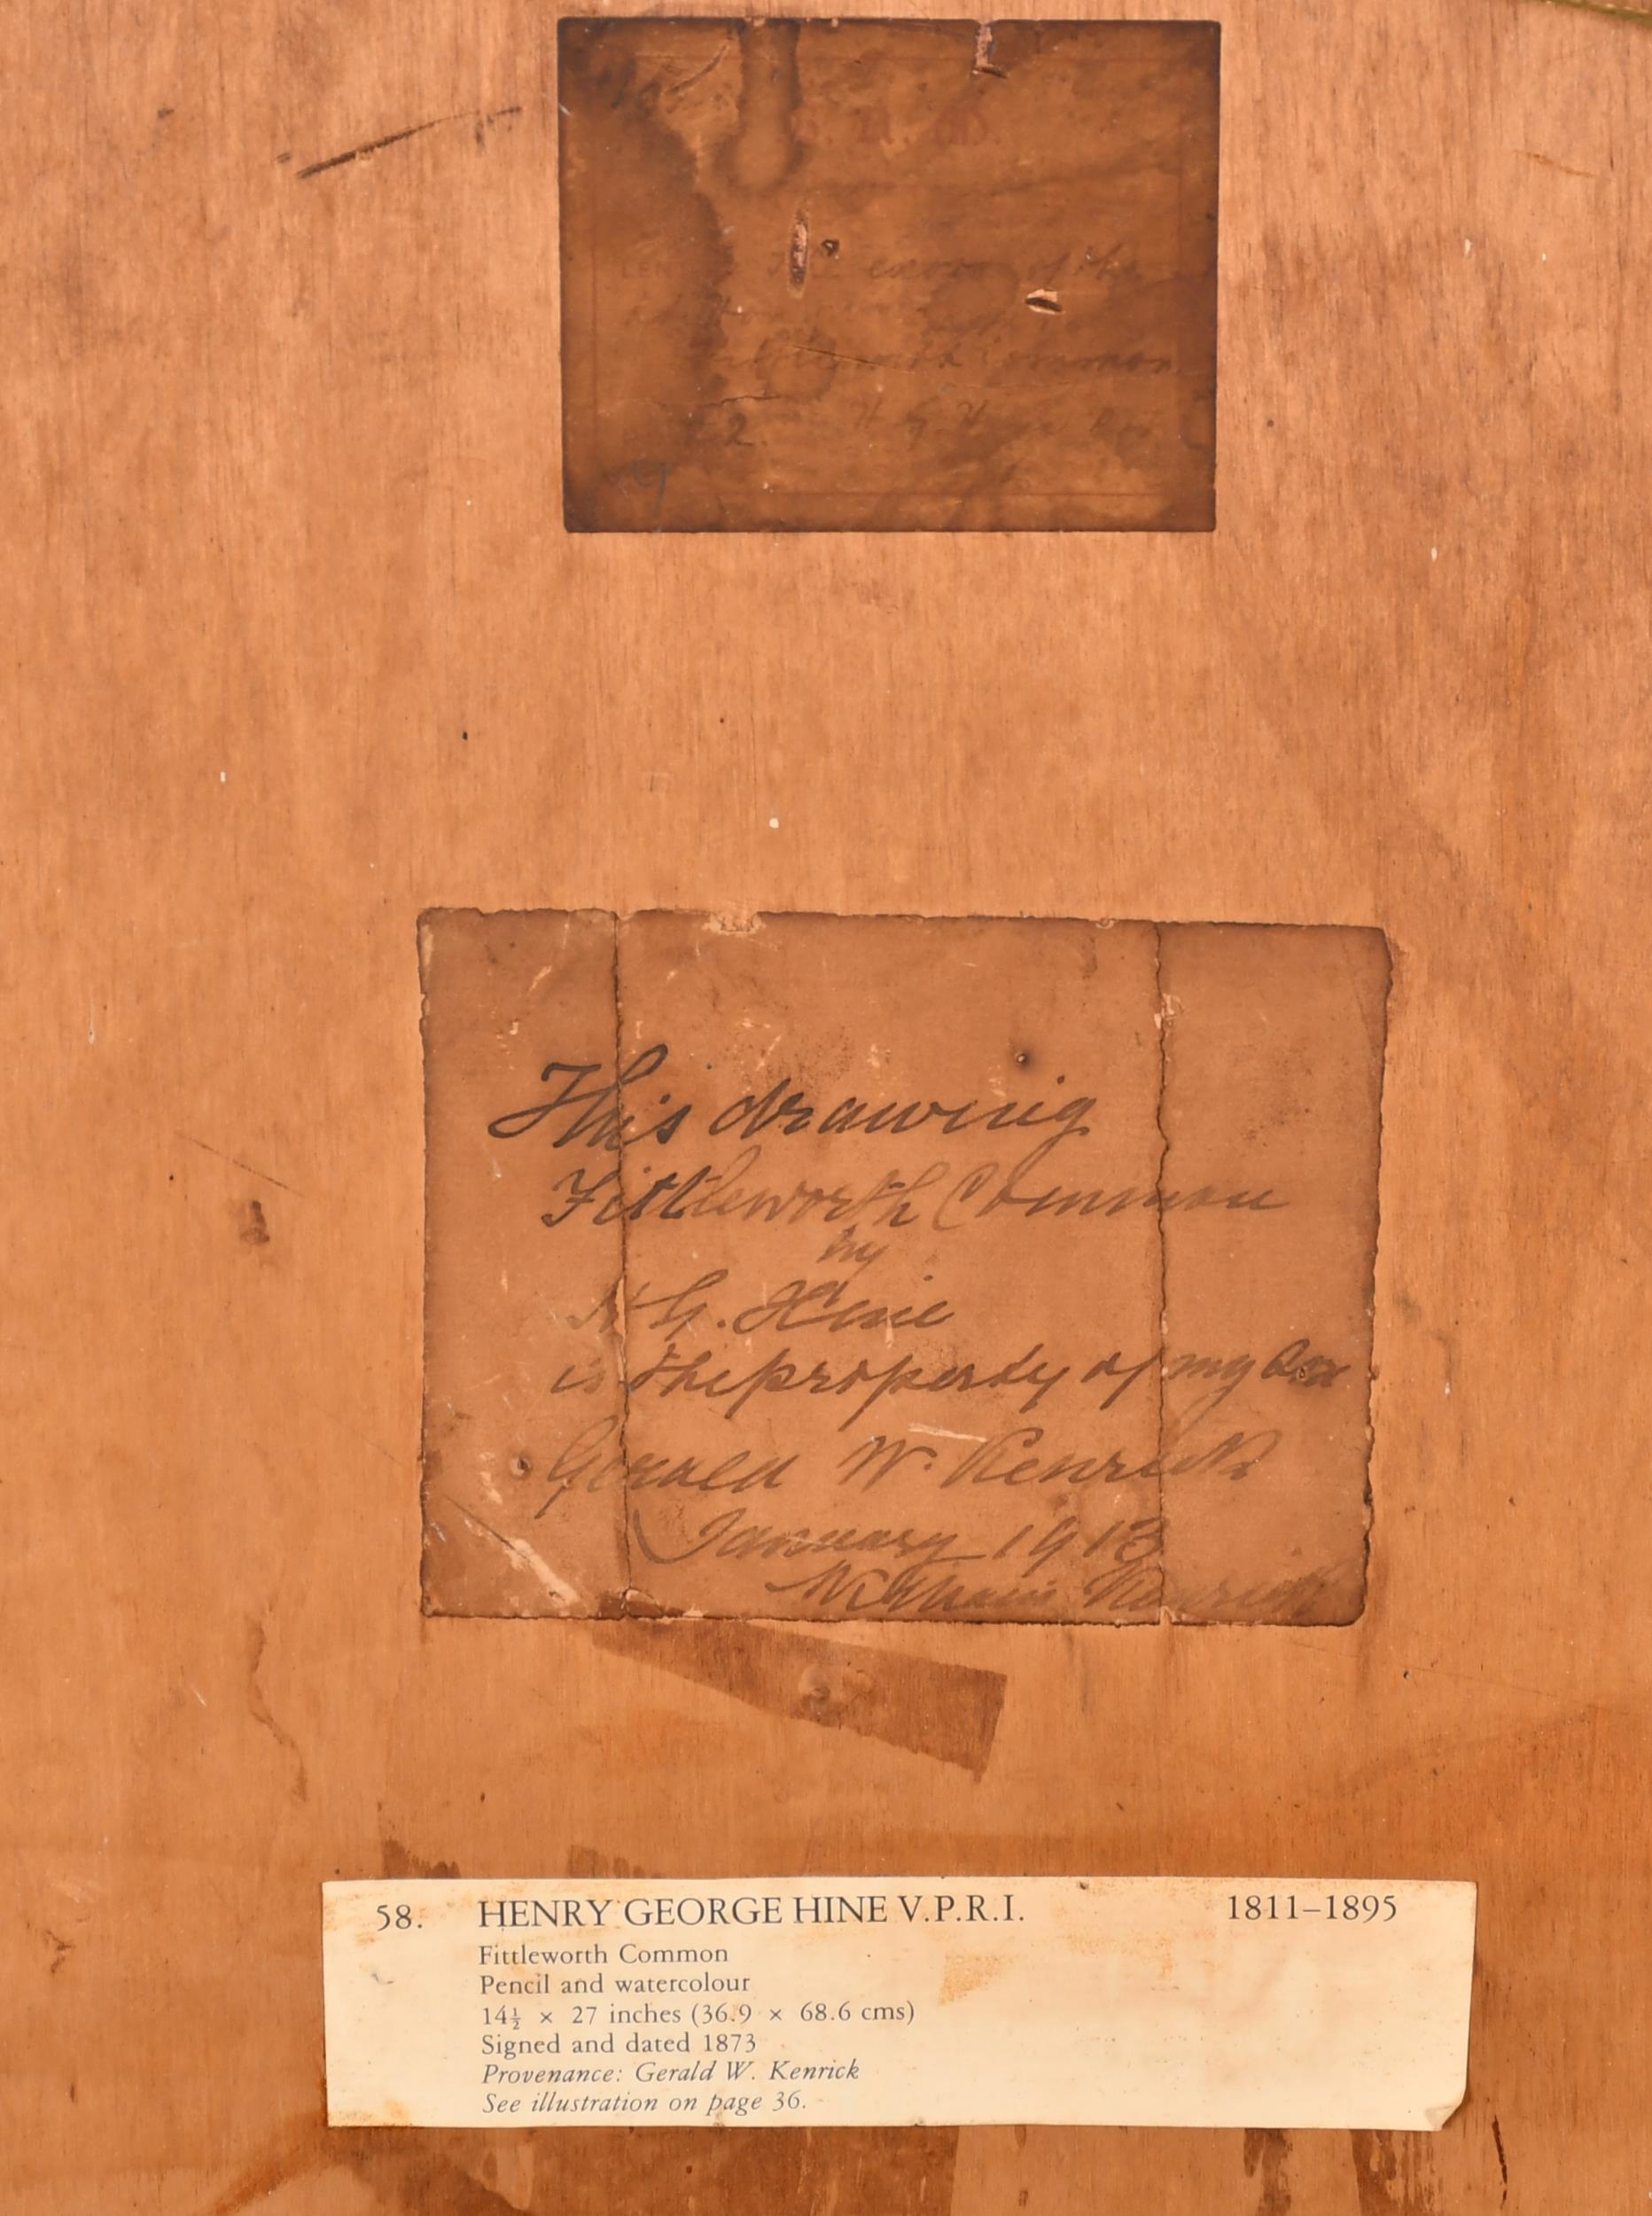 of the
Common
2.
This drawing
Fittleworth Common
by
H G. Hine
is the property of my son
Gerald W. Kenrick
January 1913
William Kenrick
58. HENRY GEORGE HINE V.P.R.I. 1811–1895
Fittleworth Common
Pencil and watercolour
14½ × 27 inches (36.9 × 68.6 cms)
Signed and dated 1873
Provenance: Gerald W. Kenrick
See illustration on page 36.